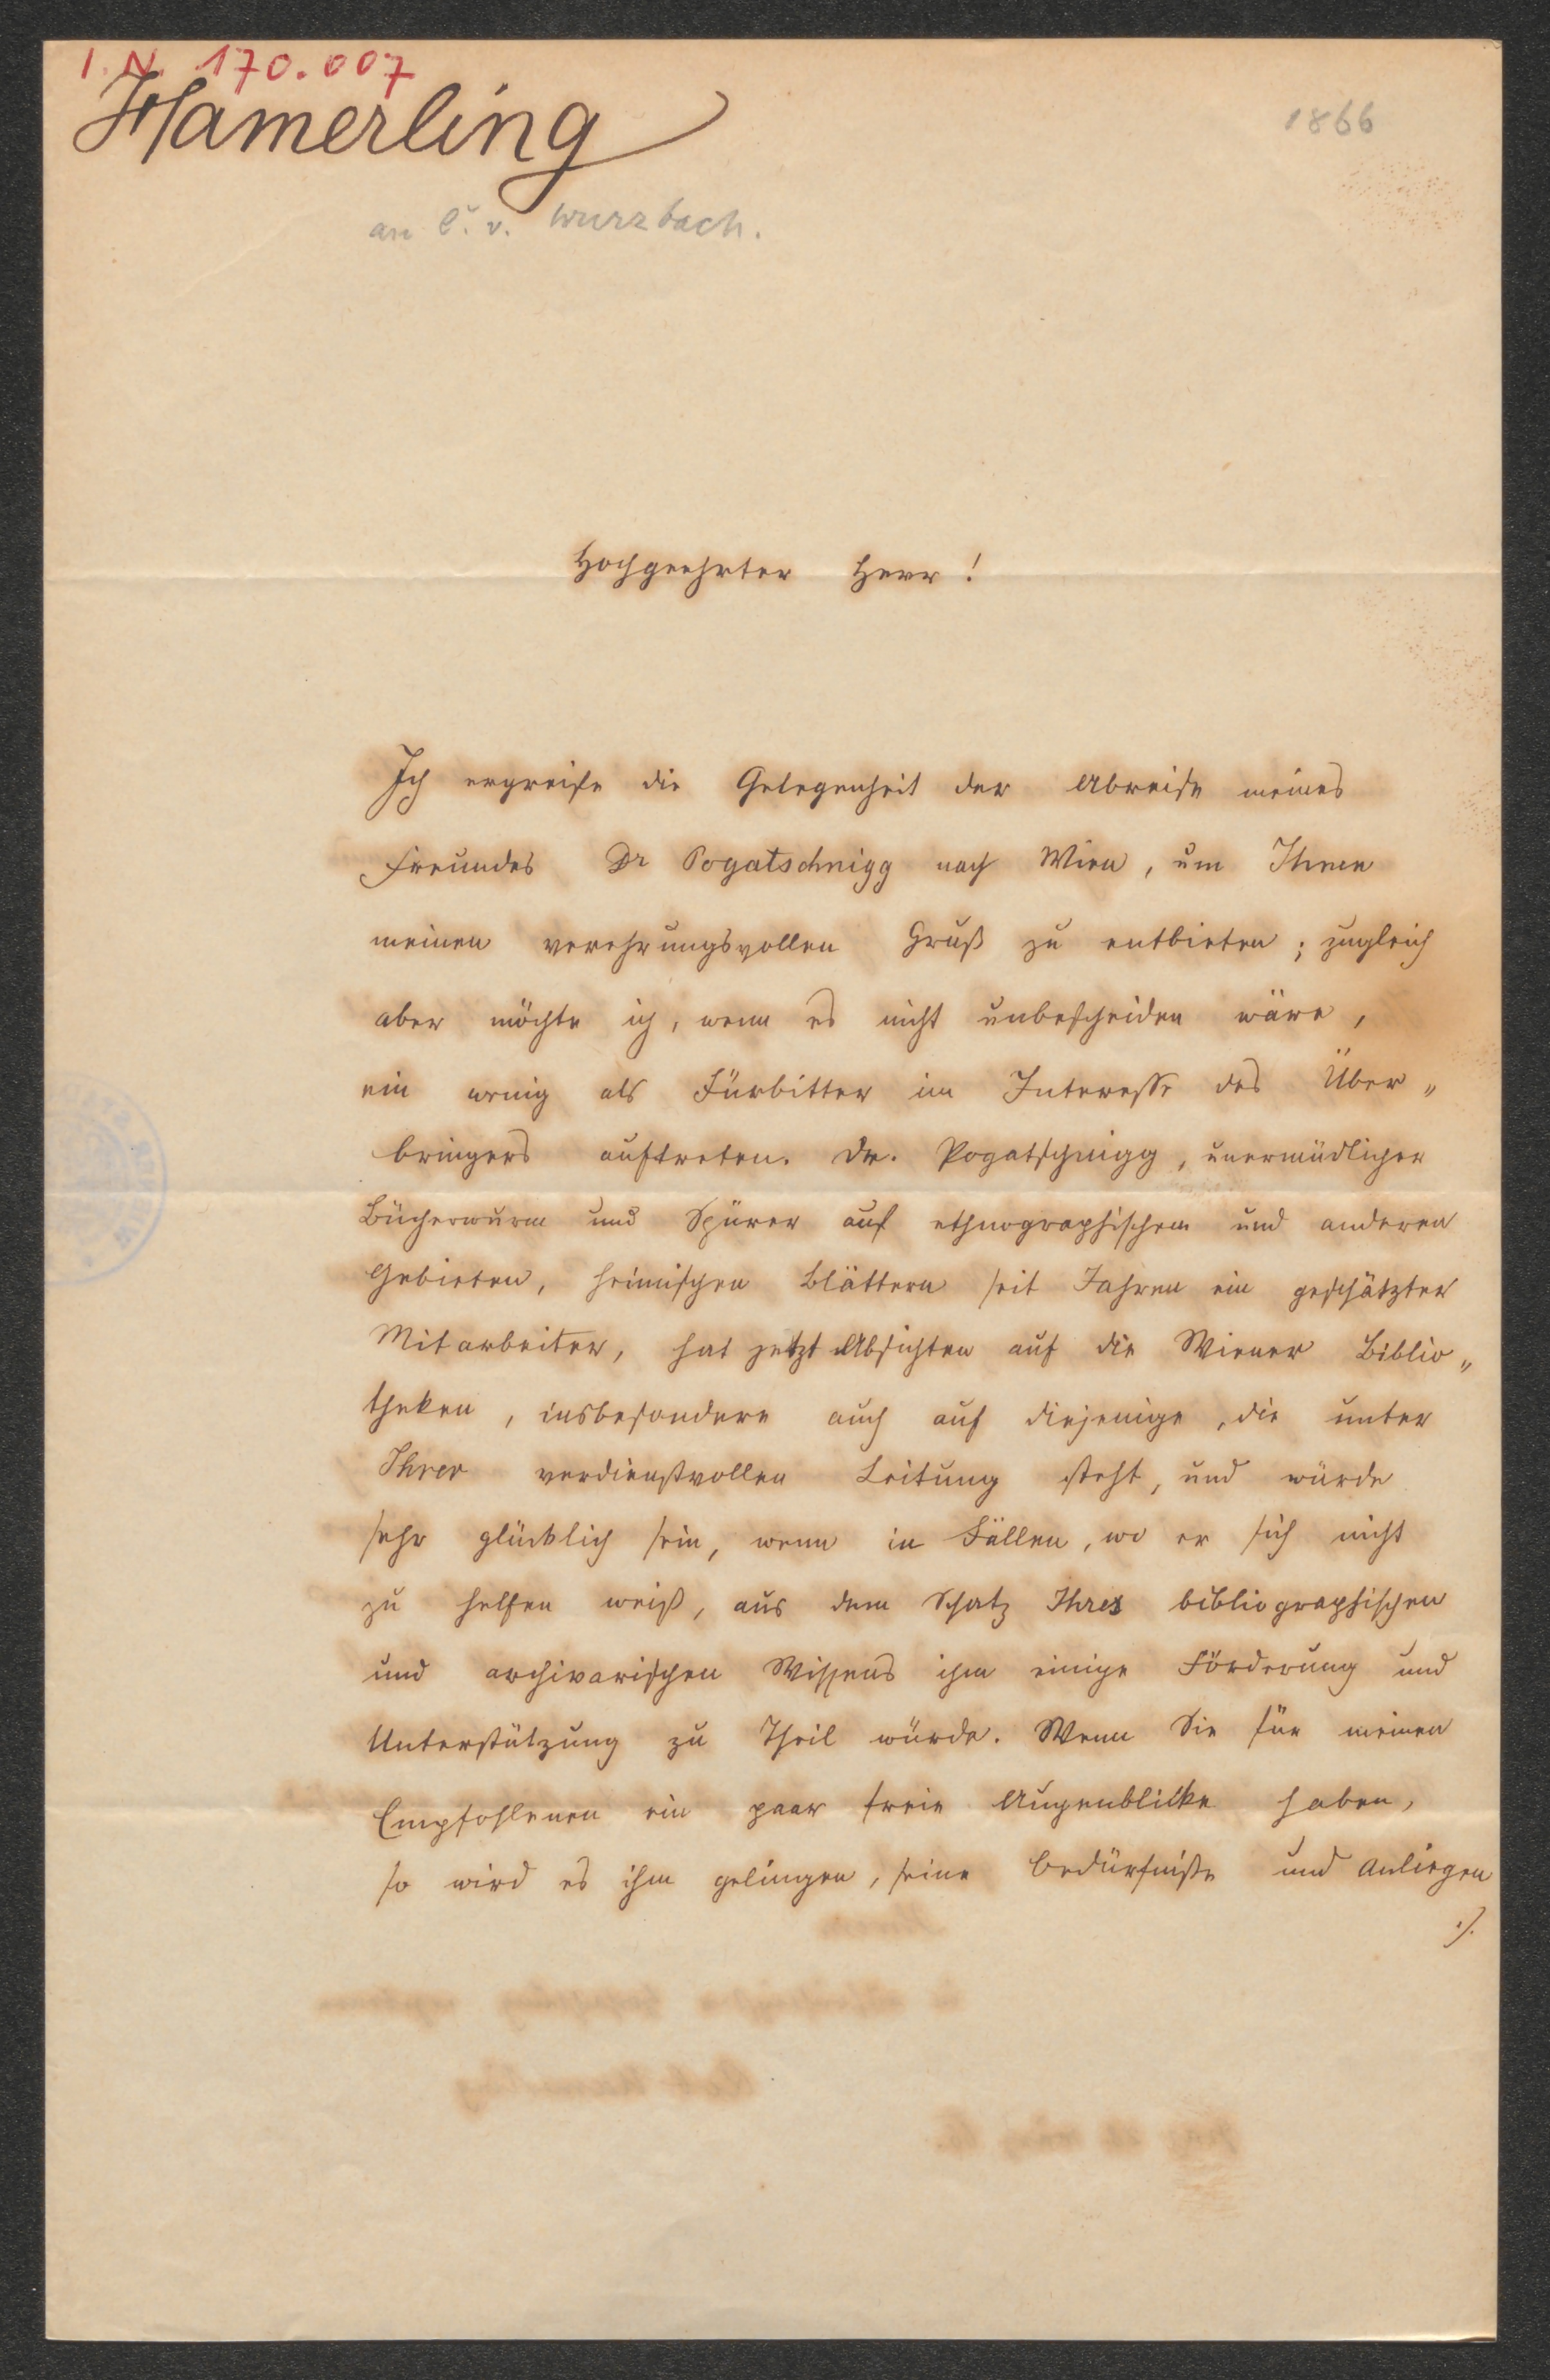 I. N. 170.007
Hamerling
1866
an C. v. Wurzbach.
Hochgeehrter Herr!
Ich ergreife die Gelegenheit der Abreise meines
Freundes Dr Pogatschnigg nach Wien, um Ihnen
meinen verehrungsvollen Gruß zu entbieten; zugleich
aber möchte ich, wenn es nicht unbescheiden wäre,
ein wenig als Fürbitter im Interesse des Über„
bringers auftreten. Dr. Pogatschnigg, unermüdlicher
Bücherwurm und Spürer auf ethnographischem und anderen
Gebieten, heimischen Blättern seit Jahren ein geschätzter
Mitarbeiter, hat jetzt Absichten auf die Wiener Biblio„
theken, insbesondere auch auf diejenige, die unter
Ihrer verdienstvollen Leitung steht, und würde
sehr glücklich sein, wenn in Fällen, wo er sich nicht
zu helfen weiß, aus dem Schatz Ihres bibliographischen
und archivarischen Wissens ihm einige Förderung und
Unterstützung zu Theil würde. Wenn Sie für meinen
Empfohlenen ein paar freie Augenblicke haben,
so wird es ihm gelingen, seine Bedürfniße und Anliegen
./.